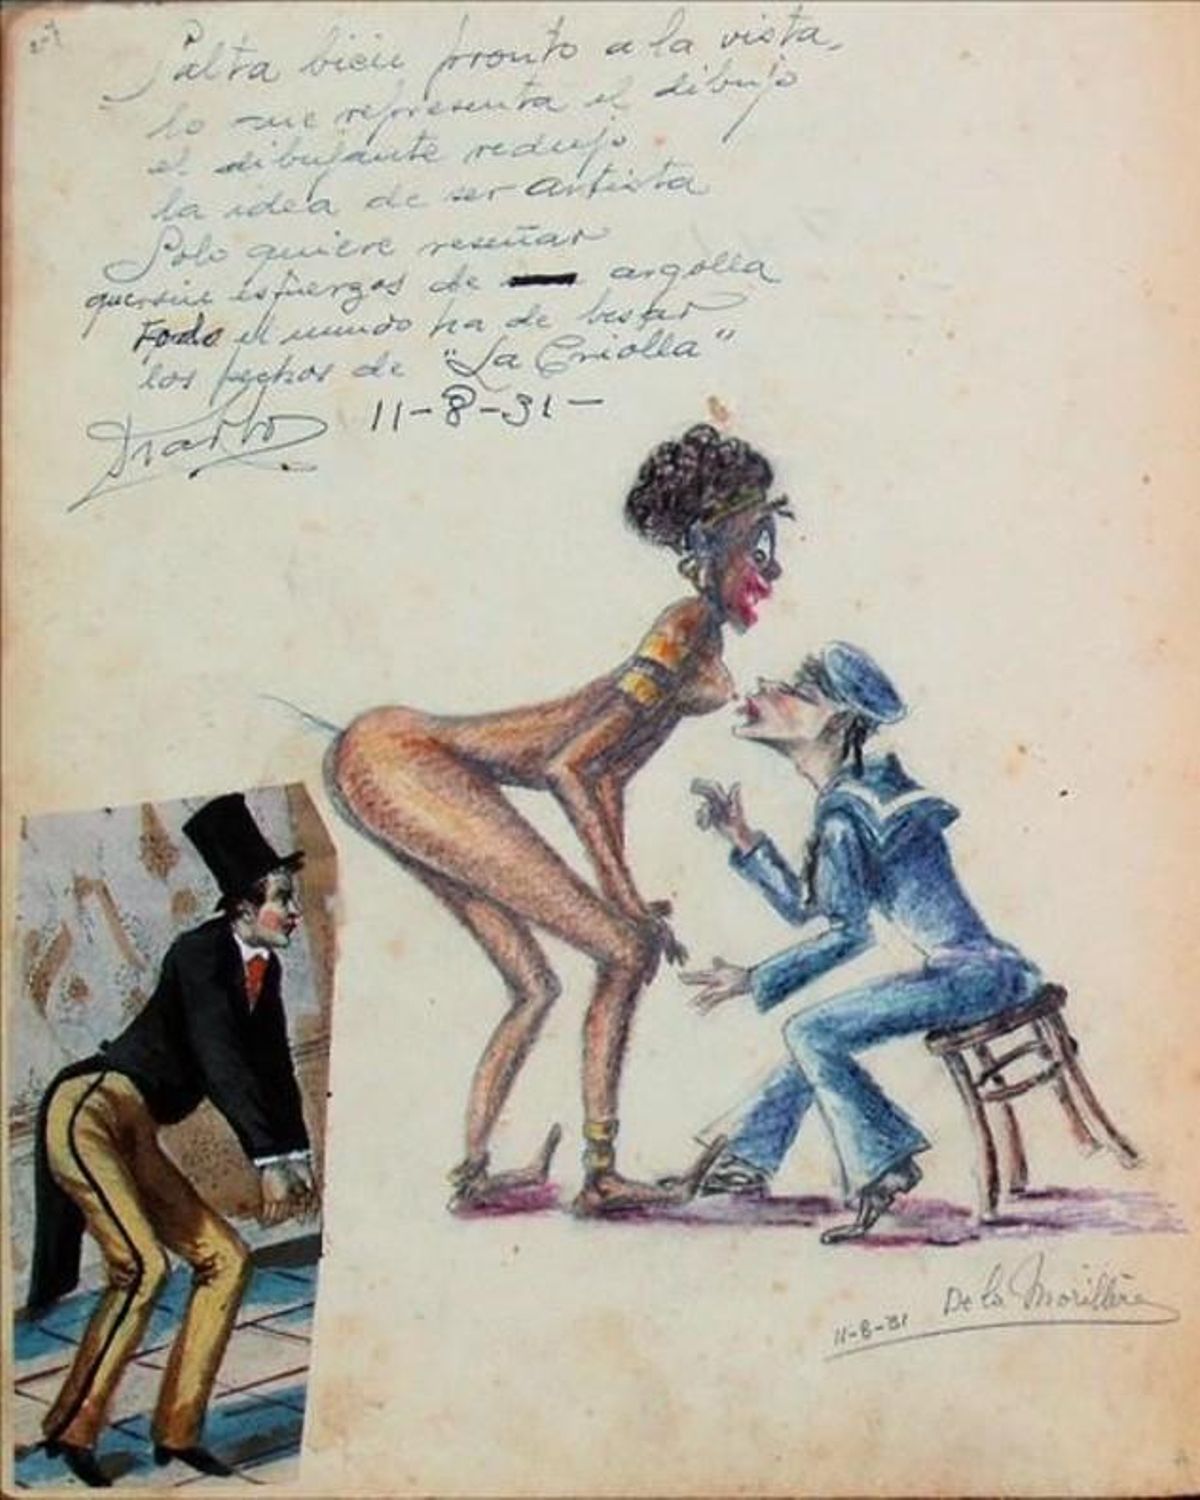 Salta bien pronto a la vista,
lo que representa el dibujo
el dibujante redujo
la idea de ser artista
Solo quiere reseñar
que sin esfuerzos de argolla
Todo el mundo ha de besar
los pechos de "La Criolla"
11-8-31-
De la Morillère
11-8-31